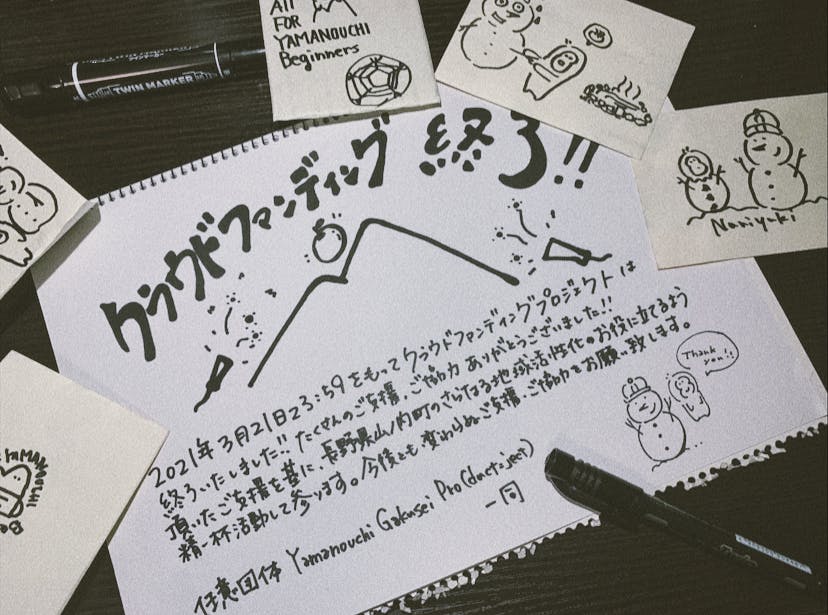 All
FOR
YAMANOUCHI
Beginners
TWIN MARKER
Nariyuki
クラウドファンディング 終了!!
2021年3月21日23:59をもってクラウドファンディングプロジェクトは
終了いたしました!! たくさんのご支援・ご協力 ありがとうございました!!
頂いたご支援を基に、長野県山ノ内町のさらなる地域活性化のお役に立てるよう
精一杯活動して参ります。今後とも、変わらぬご支援・ご協力をお願い致します。
Thank you!!
任意団体 Yamanouchi Gakusei Pro(duct=ject)
一同
YAMANOUCHI
Be